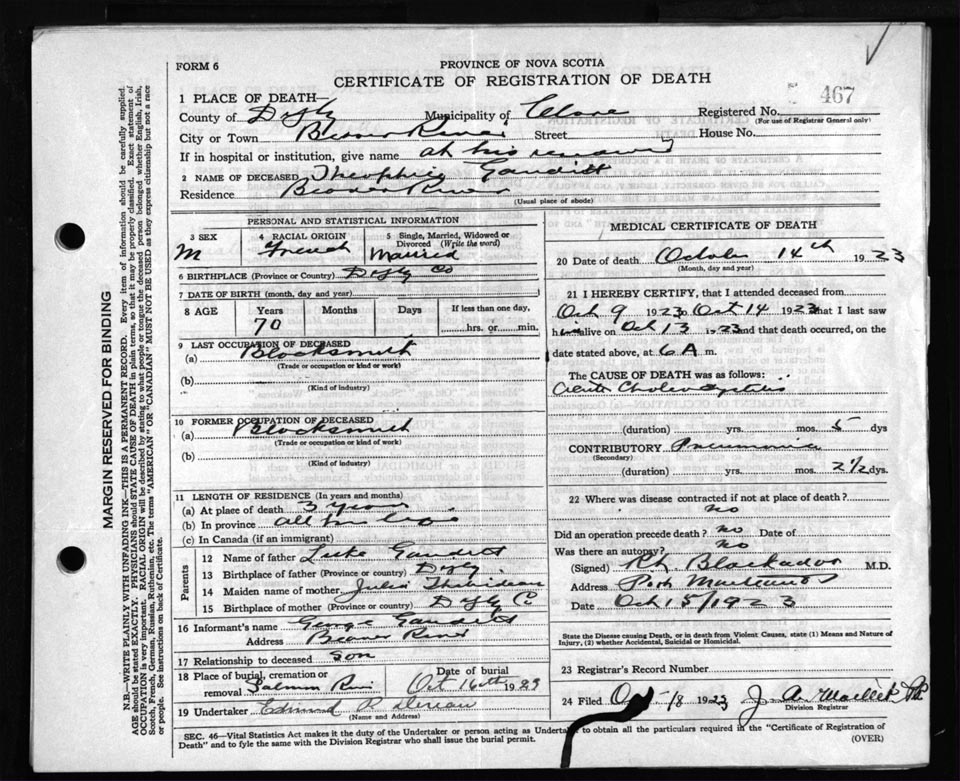 FORM 6
PROVINCE OF NOVA SCOTIA
CERTIFICATE OF REGISTRATION OF DEATH
467
1 PLACE OF DEATH—
County of Digby Municipality of Clare Registered No.
(For use of Registrar General only)
City or Town Beaver River Street House No.
If in hospital or institution, give name at his
2 NAME OF DECEASED
Residence Beaver River
(Usual place of abode)
PERSONAL AND STATISTICAL INFORMATION
3 SEX M
4 RACIAL ORIGIN French
5 Single, Married, Widowed or Divorced (Write the word) Married
6 BIRTHPLACE (Province or Country) Digby Co
7 DATE OF BIRTH (month, day and year)
8 AGE Years Months Days If less than one day,
70 hrs. or min.
9 LAST OCCUPATION OF DECEASED
(a) Blacksmith
(Trade or occupation or kind or work)
(b)
(Kind of industry)
10 FORMER OCCUPATION OF DECEASED
(a) Blacksmith
(Trade or occupation or kind of work)
(b)
(Kind of industry)
11 LENGTH OF RESIDENCE (In years and months)
(a) At place of death 3 years
(b) In province all his life
(c) In Canada (if an immigrant)
Parents
12 Name of father Luke
13 Birthplace of father (Province or country) Digby
14 Maiden name of mother Thibideau
15 Birthplace of mother (Province or country) Digby Co
16 Informant's name George
Address Beaver River
17 Relationship to deceased Son
18 Place of burial, cremation or removal Salmon River Date of burial Oct 16th 1923
19 Undertaker Edmund
MEDICAL CERTIFICATE OF DEATH
20 Date of death October 14th 1923
(Month, day and year)
21 I HEREBY CERTIFY, that I attended deceased from
Oct 9 1923 to Oct 14 1923 that I last saw
him alive on Oct 13 1923 and that death occurred, on the
date stated above, at 6 A m.
The CAUSE OF DEATH was as follows:
Acute Cholecystitis
(duration) yrs. mos. 5 dys
CONTRIBUTORY Pneumonia
(Secondary)
(duration) yrs. mos. 2 1/2 dys.
22 Where was disease contracted if not at place of death?
no
Did an operation precede death? no Date of
Was there an autopsy? no
(Signed) Blackadar M.D.
Address Port Maitland
Date Oct 15/1923
State the Disease causing Death, or in death from Violent Causes, state (1) Means and Nature of
Injury, (2) whether Accidental, Suicidal or Homicidal.
23 Registrar's Record Number
24 Filed 18 1923 J. A.
Division Registrar
SEC. 46—Vital Statistics Act makes it the duty of the Undertaker or person acting as Undertaker to obtain all the particulars required in the "Certificate of Registration of
Death" and to fyle the same with the Division Registrar who shall issue the burial permit. (OVER)
MARGIN RESERVED FOR BINDING
N.B.—WRITE PLAINLY WITH UNFADING INK—THIS IS A PERMANENT RECORD. Every item of information should be carefully supplied.
AGE should be stated EXACTLY. PHYSICIANS should STATE CAUSE OF DEATH in plain terms, so that it may be properly classified. Exact statement of
OCCUPATION is very important. RACIAL ORIGIN will be described by stating to what people or tongue the deceased person belonged whether English, Irish,
Scotch, French, German, Russian, Ruthenian, etc. The terms "AMERICAN" OR "CANADIAN" MUST NOT BE USED as they express citizenship but not a race
or people. See instructions on back of Certificate.